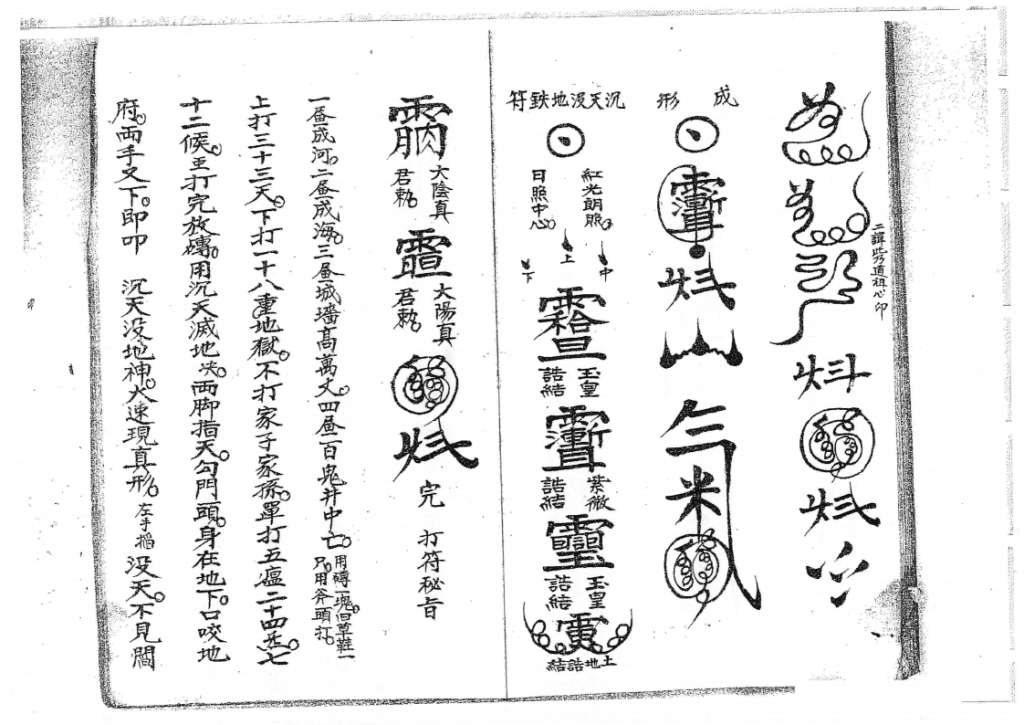 二諱此乃道祖心印
成形
沉天没地鉄符
紅光朗照
日照中心
中
上
下
玉皇
誥結
紫微
誥結
玉皇
誥結
土地誥結
大陰真
君勅
大陽真
君勅
完 打符秘旨
一昼成河二昼成海三昼城墻高萬丈四昼一百鬼井中亡
用磚一塊旧草鞋一
只用斧頭打
上打三十三天下打一十八重地獄不打家子家孫單打五瘟二十四炁七
十二候至打完放磚用沉天滅地決両脚指天勾門頭身在地下口咬地
府両手叉下即叩 沉天没地神大速現真形左手搯没天不見閻